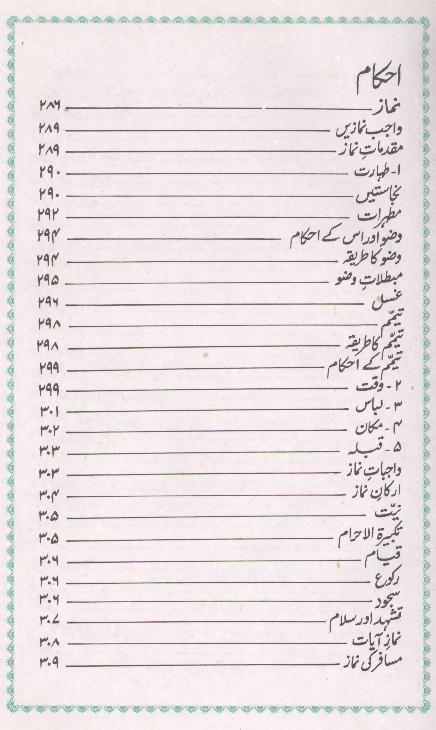 احکام
نماز ۲۸۶
واجب نمازیں ۲۸۹
مقدماتِ نماز ۲۸۹
۱- طہارت ۲۹۰
نجاستیں ۲۹۰
مطہرات ۲۹۲
وضو اور اس کے احکام ۲۹۴
وضو کا طریقہ ۲۹۴
مبطلاتِ وضو ۲۹۵
غسل ۲۹۶
تیمّم ۲۹۸
تیمّم کا طریقہ ۲۹۸
تیمّم کے احکام ۲۹۹
۲- وقت ۲۹۹
۳- لباس ۳۰۱
۴- مکان ۳۰۲
۵- قبلہ ۳۰۳
واجباتِ نماز ۳۰۳
ارکانِ نماز ۳۰۴
نیّت ۳۰۵
تکبیرۃ الاحرام ۳۰۵
قیام ۳۰۶
رکوع ۳۰۶
سجود ۳۰۶
تشہد اور سلام ۳۰۷
نمازِ آیات ۳۰۸
مسافر کی نماز ۳۰۹